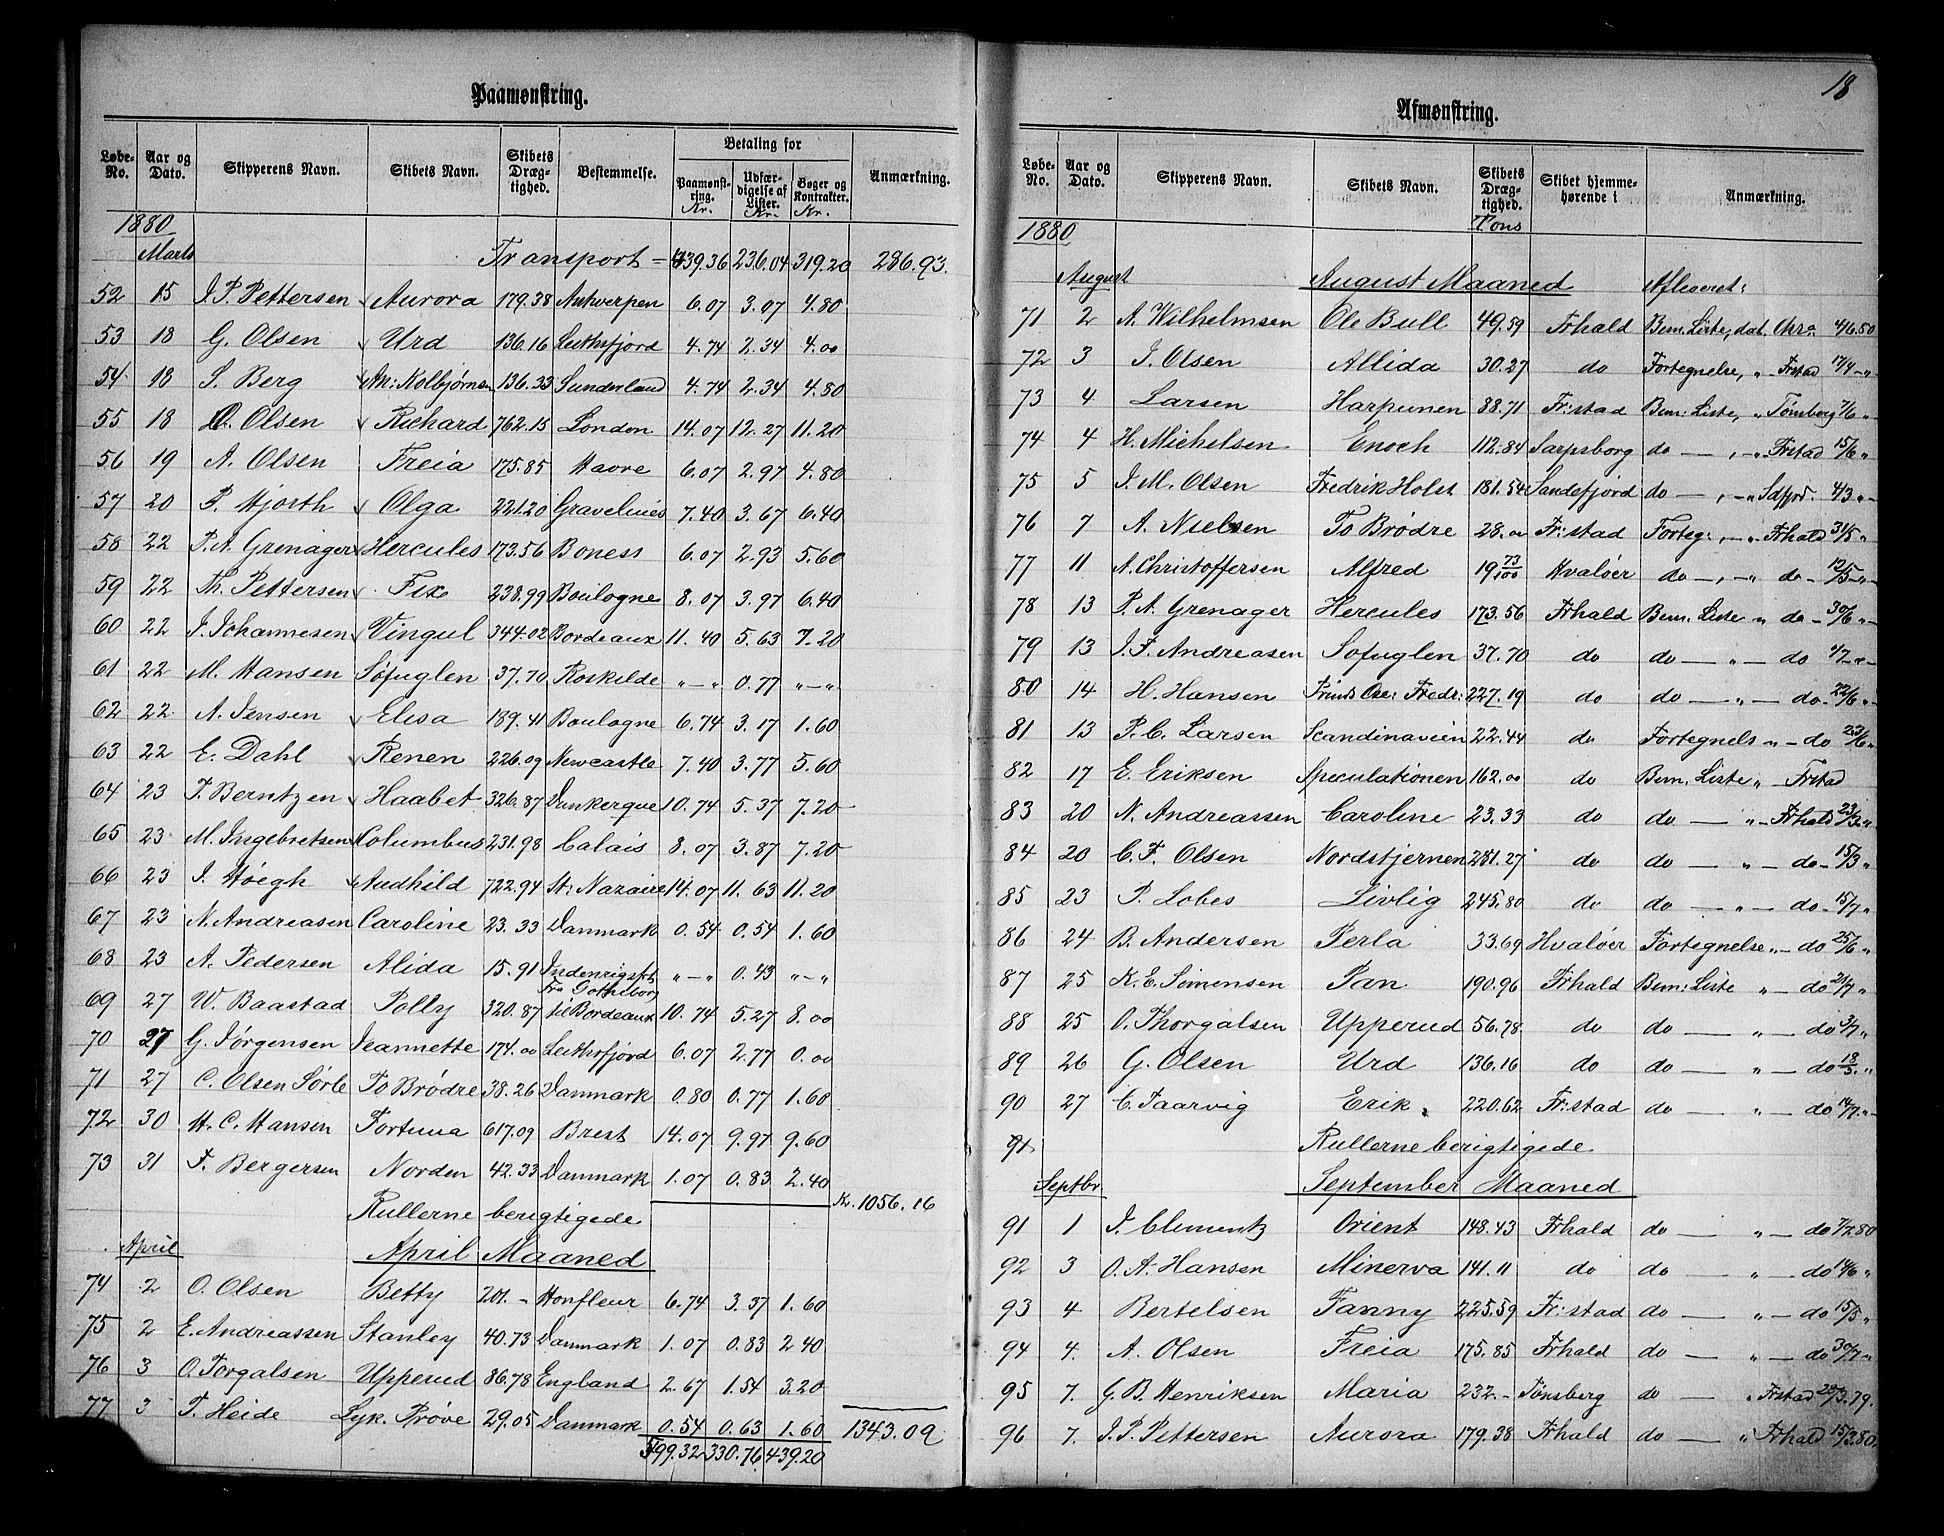 Paamønstring.
Løbe-No. Aar og Dato. Skipperens Navn. Skibets Navn. Skibets Dræg-tighed. Bestemmelse. Betaling for Paamønst-ring. Kr. Udfær-digelse af Lister. Kr. Bøger og Kontrakter. Kr. Anmærkning.
1880
Marts Transport = 439.36 236.04 319.20 286.93.
52 15 J. P. Pettersen Aurora 179.38 Antwerpen 6.07 3.07 4.80
53 18 G. Olsen Urd 136.16 Leithsfjord 4.74 2.34 4.00
54 18 S. Berg An: Kolbjørnsen 136.33 Sunderland 4.74 2.34 4.80
55 18 O. Olsen Richard 762.15 London 14.07 12.27 11.20
56 19 A. Olsen Freia 175.85 Havre 6.07 2.97 4.80
57 20 P. Hjorth Olga 221.20 Gravelines 7.40 3.67 6.40
58 22 P. A. Grenager Hercules 173.56 Boness 6.07 2.93 5.60
59 22 Th. Pettersen Fix 238.99 Boulogne 8.07 3.97 6.40
60 22 J. Johannesen Vingul 344.02 Bordeaux 11.40 5.63 7.20
61 22 M. Hansen Søfuglen 37.70 Roskilde "—" 0.77 "—"
62 22 A. Jensen Elisa 189.41 Boulogne 6.74 3.17 1.60
63 22 E. Dahl Renen 226.09 Newcastle 7.40 3.77 5.60
64 23 F. Berntzen Haabet 326.87 Dunkerque 10.74 5.37 7.20
65 23 M. Ingebretsen Columbus 231.98 Calais 8.07 3.87 7.20
66 23 J. Høegh Audhild 722.94 St: Nazaire 14.07 11.63 11.20
67 23 N. Andreasen Caroline 23.33 Danmark 0.54 0.54 1.60
68 23 A. Pedersen Alida 15.91 Indenrigsfrt "—" 0.43 "—"
69 27 W. Baastad Polly 320.87 Fra Gotheborg til Bordeaux 10.74 5.27 8.00
70 27 G. Jørgensen Jeannette 174.00 Leithsfjord 6.07 2.77 0.00
71 27 C. Olsen Sørle To Brødre 38.26 Danmark 0.80 0.77 1.60
72 30 H. C. Hansen Fortuna 617.09 Brest 14.07 9.97 9.60
73 31 F. Bergersen Norden 42.33 Danmark 1.07 0.83 2.40
Kr. 1056.16
Rullerne berigtigede
April April Maaned
74 2 O. Olsen Betty 201.- Honfleur 6.74 3.37 1.60
75 2 E. Andreassen Stanley 40.73 Danmark 1.07 0.83 2.40
76 3 O. Torgalsen Upperud 86.78 England 2.67 1.54 3.20
77 3 T. Heide Lyk. Prøve 29.05 Danmark 0.54 0.63 1.60 1343.09
599.32 330.76 439.20
18
Afmønstring.
Løbe-No. Aar og Dato. Skipperens Navn. Skibets Navn. Skibets Dræg-tighed. Tons Skibet hjemme-hørende i Anmærkning.
1880
August August Maaned Afleveret:
71 2 A. Wilhelmsen Ole Bull 49.59 Frhald Bem. Liste, dat. Chra: 4/6.80
72 3 J. Olsen Allida 30.27 do Fortegnelse, " Frstad 17/4 -"-
73 4 Larsen Harpunen 88.71 Fr:stad Bem: Liste, " Tønsberg 7/6 "
74 4 H. Michelsen Enoch 112.84 Sarpsborg do — , -" Frstad 15/6 "
75 5 J. M. Olsen Fredrik Holst 181.54 Sandefjord do — , -" Sdfjrd. 4/3 "-
76 7 A. Nielsen To Brødre 28.00 Fr:stad Forteg:, — " Frhald 31/5 "
77 11 A. Christoffersen Alfred 19 73/100 Hvaløer do —, -" do — 12/5 -"-
78 13 P. A. Grenager Hercules 173.56 Frhald Bem. Liste " do - 30/6 "-
79 13 J. F. Andreasen Søfuglen 37.70 do do — " — do 4/7 -"-
80 14 H. Hansen Prinds Osc: Fredr: 227.19 do do — " — do. 22/6 "-
81 13 P. C. Larsen Scandinavien 22.44 do Fortegnels " — do 23/6 "
82 17 E. Eriksen Speculationen 162.00 do Bem. Liste " — Frstad
83 20 N. Andreassen Caroline 23.33 do do — " — Frhald 23/3 "
84 20 C. F. Olsen Nordstjernen 251.27 do do — " — do - 15/3 "
85 23 P. Lobes Livlig 245.80 do do — " — do - 15/7 "
86 24 B. Andersen Perla 33.69 Hvaløer Fortegnelse " — do 25/6 "
87 25 K. E. Sørensen Pan 190.96 Frhald Bem: Liste " — do 21/7 "
88 25 O. Thorgalsen Upperud 56.78 do do — " — do 3/7 "
89 26 G. Olsen Urd 136.16 do do — " — do 18/3 "
90 27 C. Taarvig Erik 220.62 Fr:stad do — " — do 14/7 "-
91 Rullerne berigtigede
Septbr. September Maaned
91 1 J. Clementz Orient 148.43 Frhald do — " — do 7/7.80
92 3 O. A. Hansen Minerva 141.11 do do — " — do 14/6 "
93 4 Bertelsen Fanny 225.59 Fr:stad do — " — do 15/5 "
94 4. A. Olsen Freia 175.85 Frhald do — " — do 30/7 "
95 7. G. B. Henriksen Maria 232.- Tønsberg do — " Frstad 28/3.79.
96 7. J. P. Pettersen Aurora 179.38 Frhald do — " Frhald 15/3.80.